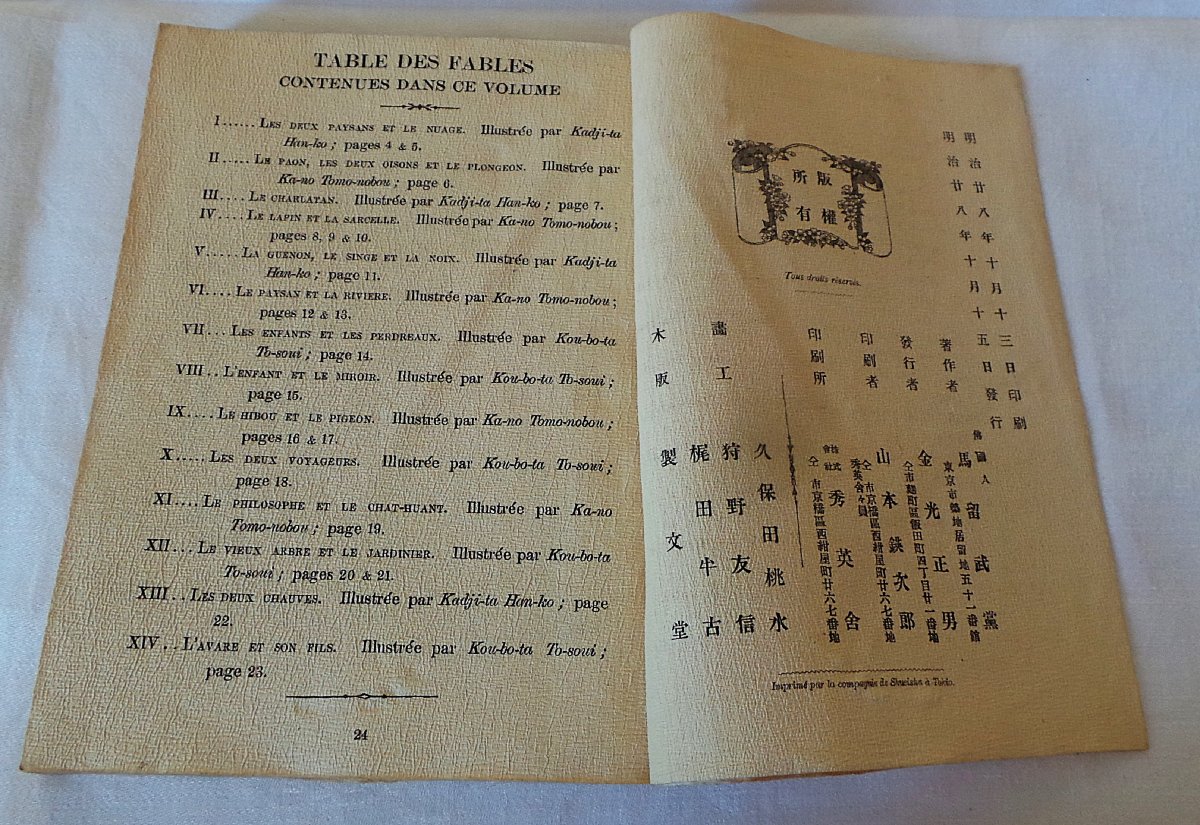 TABLE DES FABLES
CONTENUES DANS CE VOLUME
I...... LES DEUX PAYSANS ET LE NUAGE. Illustrée par Kadji-ta
Han-ko ; pages 4 & 5.
II..... LE PAON, LES DEUX OISONS ET LE PLONGEON. Illustrée par
Ka-no Tomo-nobou ; page 6.
III.... LE CHARLATAN. Illustrée par Kadji-ta Han-ko ; page 7.
IV.... LE LAPIN ET LA SARCELLE. Illustrée par Ka-no Tomo-nobou ;
pages 8, 9 & 10.
V..... LA GUENON, LE SINGE ET LA NOIX. Illustrée par Kadji-ta
Han-ko ; page 11.
VI.... LE PAYSAN ET LA RIVIERE. Illustrée par Ka-no Tomo-nobou ;
pages 12 & 13.
VII... LES ENFANTS ET LES PERDREAUX. Illustrée par Kou-bo-ta
To-soui ; page 14.
VIII.. L'ENFANT ET LE MIROIR. Illustrée par Kou-bo-ta To-soui ;
page 15.
IX.... LE HIBOU ET LE PIGEON. Illustrée par Ka-no Tomo-nobou ;
pages 16 & 17.
X..... LES DEUX VOYAGEURS. Illustrée par Kou-bo-ta To-soui ;
page 18.
XI.... LE PHILOSOPHE ET LE CHAT-HUANT. Illustrée par Ka-no
Tomo-nobou ; page 19.
XII... LE VIEUX ARBRE ET LE JARDINIER. Illustrée par Kou-bo-ta
To-soui ; pages 20 & 21.
XIII.. LES DEUX CHAUVES. Illustrée par Kadji-ta Han-ko ; page
22.
XIV.. L'AVARE ET SON FILS. Illustrée par Kou-bo-ta To-soui ;
page 23.
24
版權
所有
Tous droits réservés.
明治廿八年十月十三日印刷
明治廿八年十月十五日發行
著作者 佛國人 馬留武黨
東京市築地居留地五十一番館
發行者 金光正男
仝市麹町區飯田町四丁目廿一番地
印刷者 山本鉄次郎
仝市京橋區西紺屋町廿六七番地
秀英舍々員
印刷所 株式會社 秀英舍
仝市京橋區西紺屋町廿六七番地
畵工 久保田桃水
狩野友信
梶田半古
木版 製文堂
Imprimé par la compagnie de Shueisha à Tokio.